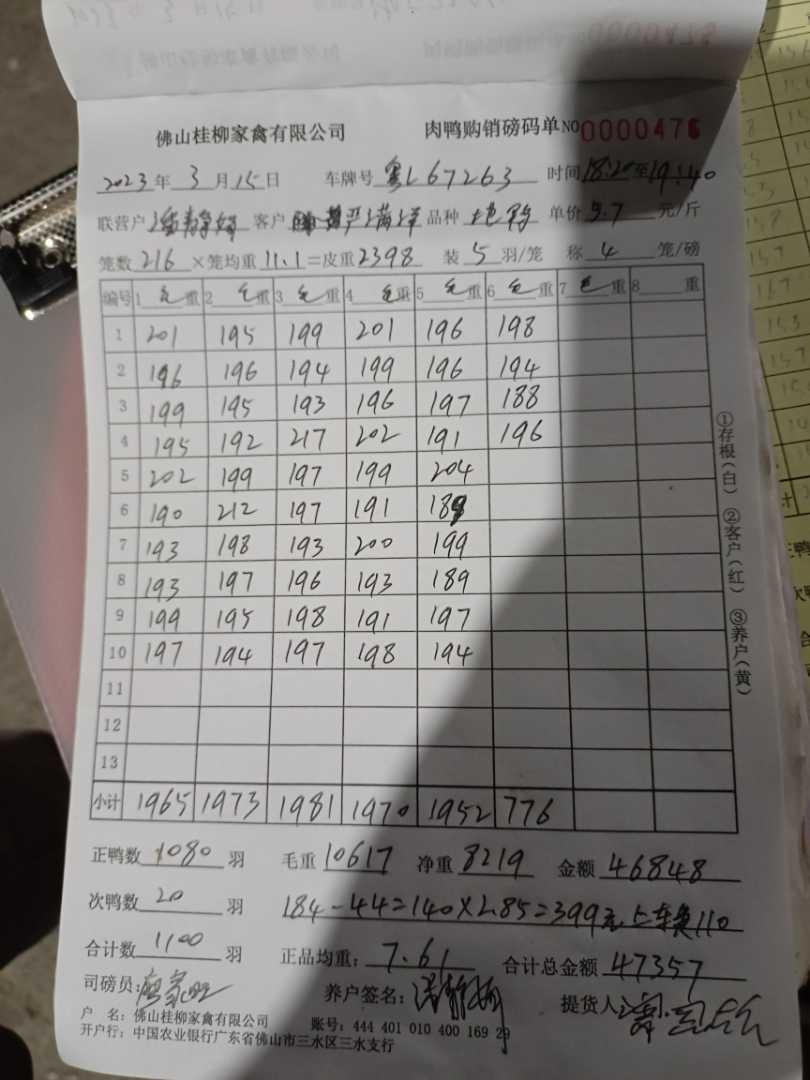 佛山桂柳家禽有限公司 肉鸭购销磅码单 NO 0000476
2023年 3月15日 车牌号 粤L67263 时间 18:20至19:40
联营户 客户 品种 土鸭 单价 5.7 元/斤
笼数 216 ×笼均重 11.1 =皮重 2398 装 5 羽/笼 称 4 笼/磅
编号 1 毛重 2 毛重 3 毛重 4 毛重 5 毛重 6 毛重 7 毛重 8 重
1 201 195 199 201 196 198
2 196 196 194 199 196 194
3 199 195 193 196 197 188
4 195 192 217 202 191 196
5 202 199 197 199 204
6 190 212 197 191 189
7 193 198 193 200 199
8 193 197 196 193 189
9 199 195 198 191 197
10 197 194 197 198 194
11
12
13
小计 1965 1973 1981 1970 1952 776
①存根(白) ②客户(红) ③养户(黄)
正鸭数 1080 羽 毛重 10617 净重 8219 金额 46848
次鸭数 20 羽 184-44=140×2.85=399元 上车费110
合计数 1100 羽 正品均重: 7.61 合计总金额 47357
司磅员: 养户签名: 提货人:
户 名: 佛山桂柳家禽有限公司 账号: 444 401 010 400 169 29
开户行: 中国农业银行广东省佛山市三水区三水支行